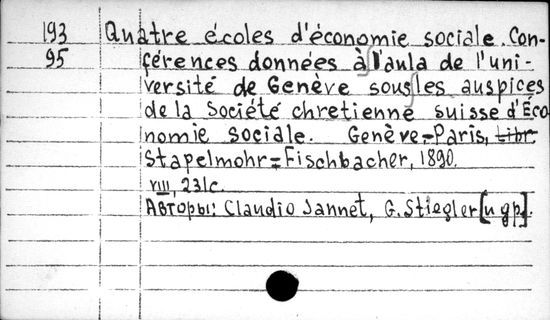 193 Quatre écoles d'économie sociale. Con-
95 férences données à l'aula de l'uni-
versité de Genève sous les auspices
de la Société chretienne suisse d'Éco
nomie sociale. Genève-Paris, Libr.
Stapelmohr-Fischbacher, 1890.
VIII, 231c.
Авторы: Claudio Jannet, G. Stiegler [и др].